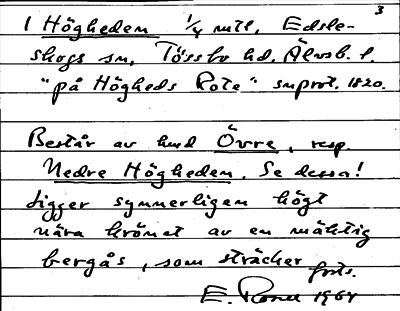 3
1 Högheden 1/4 mtl, Edsle-
skogs sn, Tössbo hd. Älvsb. l.
"på Högheds Rote" suprot. 1820.
Består av hmd Övre, resp.
Nedre Högheden. Se dessa!
Ligger synnerligen högt
nära krönet av en mäktig
bergås, som sträcker
forts.
E. 1964